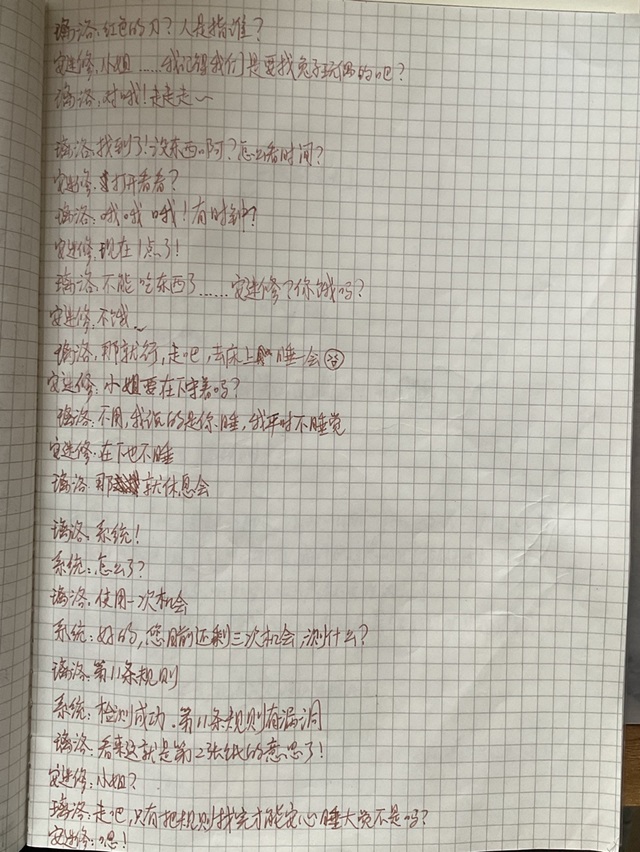 璃洛:红色的刀?人是指谁?
安进修:小姐……我记得我们是要找兔子玩偶的吧?
璃洛:对哦!走走走~
璃洛:找到了!没东西啊?怎么看时间?
安进修:打开看看?
璃洛:哦哦哦!有时钟?
安进修:现在1点了!
璃洛:不能吃东西了……安进修?你饿吗?
安进修:不饿~
璃洛:那就行,走吧,去床上睡一会
安进修:小姐要在下守着吗?
璃洛:不用,我说的是你睡,我平时不睡觉
安进修:在下也不睡
璃洛:那就休息会
璃洛:系统!
系统:怎么了?
璃洛:使用一次机会
系统:好的,您目前还剩三次机会,测什么?
璃洛:第11条规则
系统:检测成功.第11条规则有漏洞
璃洛:看来这就是第2张纸的意思了!
安进修:小姐?
璃洛:走吧,只有把规则找完才能安心睡大觉不是吗?
安进修:嗯!